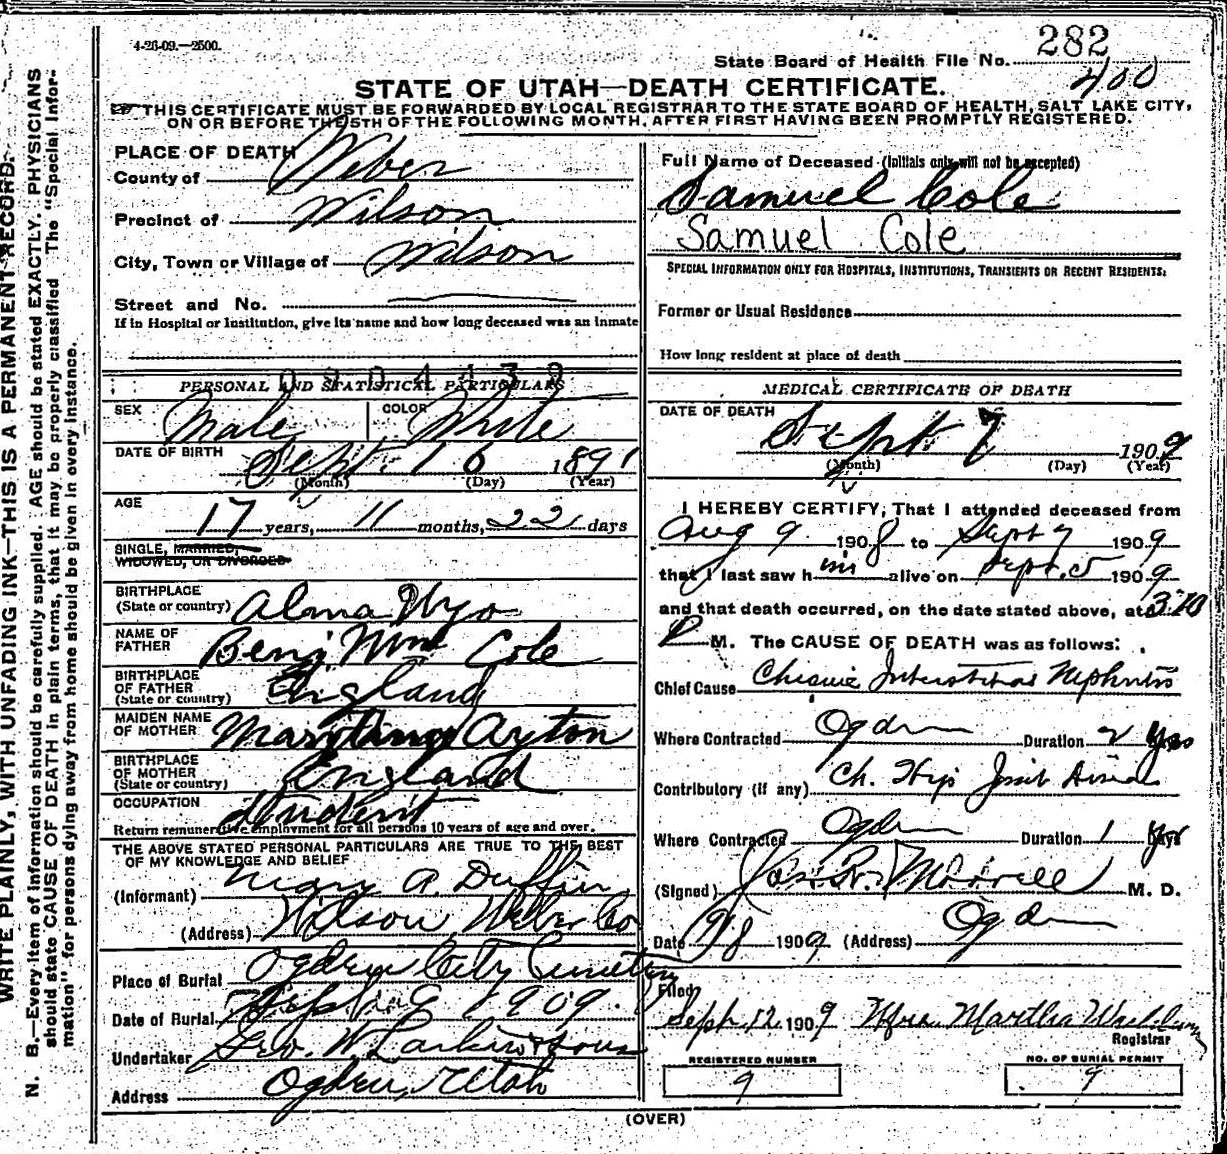 4-26-09.—2500.
State Board of Health File No. 282
400
STATE OF UTAH—DEATH CERTIFICATE.
THIS CERTIFICATE MUST BE FORWARDED BY LOCAL REGISTRAR TO THE STATE BOARD OF HEALTH, SALT LAKE CITY,
ON OR BEFORE THE 5TH OF THE FOLLOWING MONTH, AFTER FIRST HAVING BEEN PROMPTLY REGISTERED.
WRITE PLAINLY, WITH UNFADING INK—THIS IS A PERMANENT RECORD.
N. B.—Every item of information should be carefully supplied. AGE should be stated EXACTLY. PHYSICIANS
should state CAUSE OF DEATH in plain terms, that it may be properly classified The "Special Infor-
mation" for persons dying away from home should be given in every instance.
PLACE OF DEATH
County of Weber
Precinct of Wilson
City, Town or Village of Wilson
Street and No.
If in Hospital or Institution, give its name and how long deceased was an inmate
PERSONAL AND STATISTICAL PARTICULARS
SEX Male COLOR White
DATE OF BIRTH Sept. 16 1891
(Month) (Day) (Year)
AGE 17 years, 11 months, 22 days
SINGLE, MARRIED,
WIDOWED, OR DIVORCED
BIRTHPLACE
(State or country) Alma Wyo
NAME OF
FATHER Benj. Wm Cole
BIRTHPLACE
OF FATHER
(State or country) England
MAIDEN NAME
OF MOTHER Mary Ayton
BIRTHPLACE
OF MOTHER
(State or country) England
OCCUPATION Student
Return remunerative employment for all persons 10 years of age and over.
THE ABOVE STATED PERSONAL PARTICULARS ARE TRUE TO THE BEST
OF MY KNOWLEDGE AND BELIEF
(Informant) Mary A. Duffin
(Address) Wilson, Weber Co
Place of Burial Ogden City Cemetery
Date of Burial Sept. 1909.
Undertaker Geo. W. Larkin & Sons
Address Ogden, Utah
Full Name of Deceased (Initials only will not be accepted)
Samuel Cole
Samuel Cole
SPECIAL INFORMATION ONLY FOR HOSPITALS, INSTITUTIONS, TRANSIENTS OR RECENT RESIDENTS.
Former or Usual Residence
How long resident at place of death
MEDICAL CERTIFICATE OF DEATH
DATE OF DEATH Sept. 7 1909
(Month) (Day) (Year)
I HEREBY CERTIFY, That I attended deceased from
Aug 9 1908 to Sept 7 1909
that I last saw him alive on Sept. 5 1909
and that death occurred, on the date stated above, at 3:10
P M. The CAUSE OF DEATH was as follows:
Chief Cause Chronic Interstitial Nephritis
Where Contracted Ogden Duration 2 Yrs
Contributory (if any) Ch. Hip Joint Disease
Where Contracted Ogden Duration 1 Yr
(Signed) Jos. R. Morrell M. D.
Date 9/8 1909 (Address) Ogden
Filed
Sept. 12, 1909 Mrs. Martha
Registrar
REGISTERED NUMBER
9
NO. OF BURIAL PERMIT
9
(OVER)